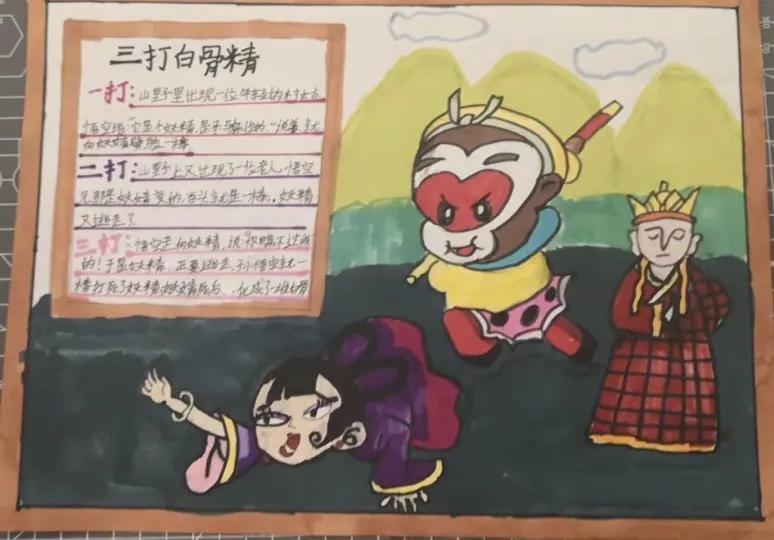 三打白骨精
一打:山野里出现一位年轻的村姑
悟空悟:"它是个妖精,是来骗你的。"说着就
向妖精劈脸一棒
二打:山野上又出现了一位老人,悟空
见那是妖精变的,当头就是一棒。妖精
又逃走了
三打:悟空走向妖精,说"你瞒不过我
的!于是妖精正要逃走,孙悟空就一
棒打死了妖精,妖精死后,化成了一堆白骨